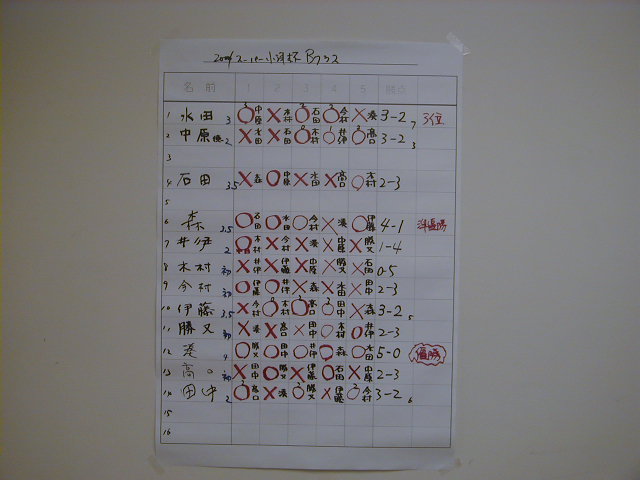 杯 Bクラス
名前 1 2 3 4 5 勝点
1 永田 3 ○中原 ×木村 ○石田 ○今村 ×湊 3-2 7 3位
2 中原 2 ×永田 ×石田 ○木村 ○井伊 ○高口 3-2 3
3
4 石田 3.5 ×森 ○中原 ×永田 ×高口 ○木村 2-3
5
6 森 3.5 ○石田 ○永田 ○今村 ×湊 ○伊藤 4-1 準優勝
7 井伊 2 ○木村 ×今村 ×湊 ×中原 ×勝又 1-4
8 木村 初 ×井伊 ×伊藤 ×中原 ×勝又 ×石田 0-5
9 今村 初 ○伊藤 ○井伊 ×森 ×永田 ×田中 2-3
10 伊藤 3.5 ×今村 ○木村 ○高口 ○田中 ×森 3-2 5
11 勝又 初 ×湊 ×高口 ×田中 ○木村 ○井伊 2-3
12 湊 4 ○勝又 ○田中 ○井伊 ○森 ○永田 5-0 優勝
13 高口 初 ×田中 ○勝又 ×伊藤 ○石田 ×中原 2-3
14 田中 2 ○高口 ×湊 ○勝又 ×伊藤 ○今村 3-2 6
15
16